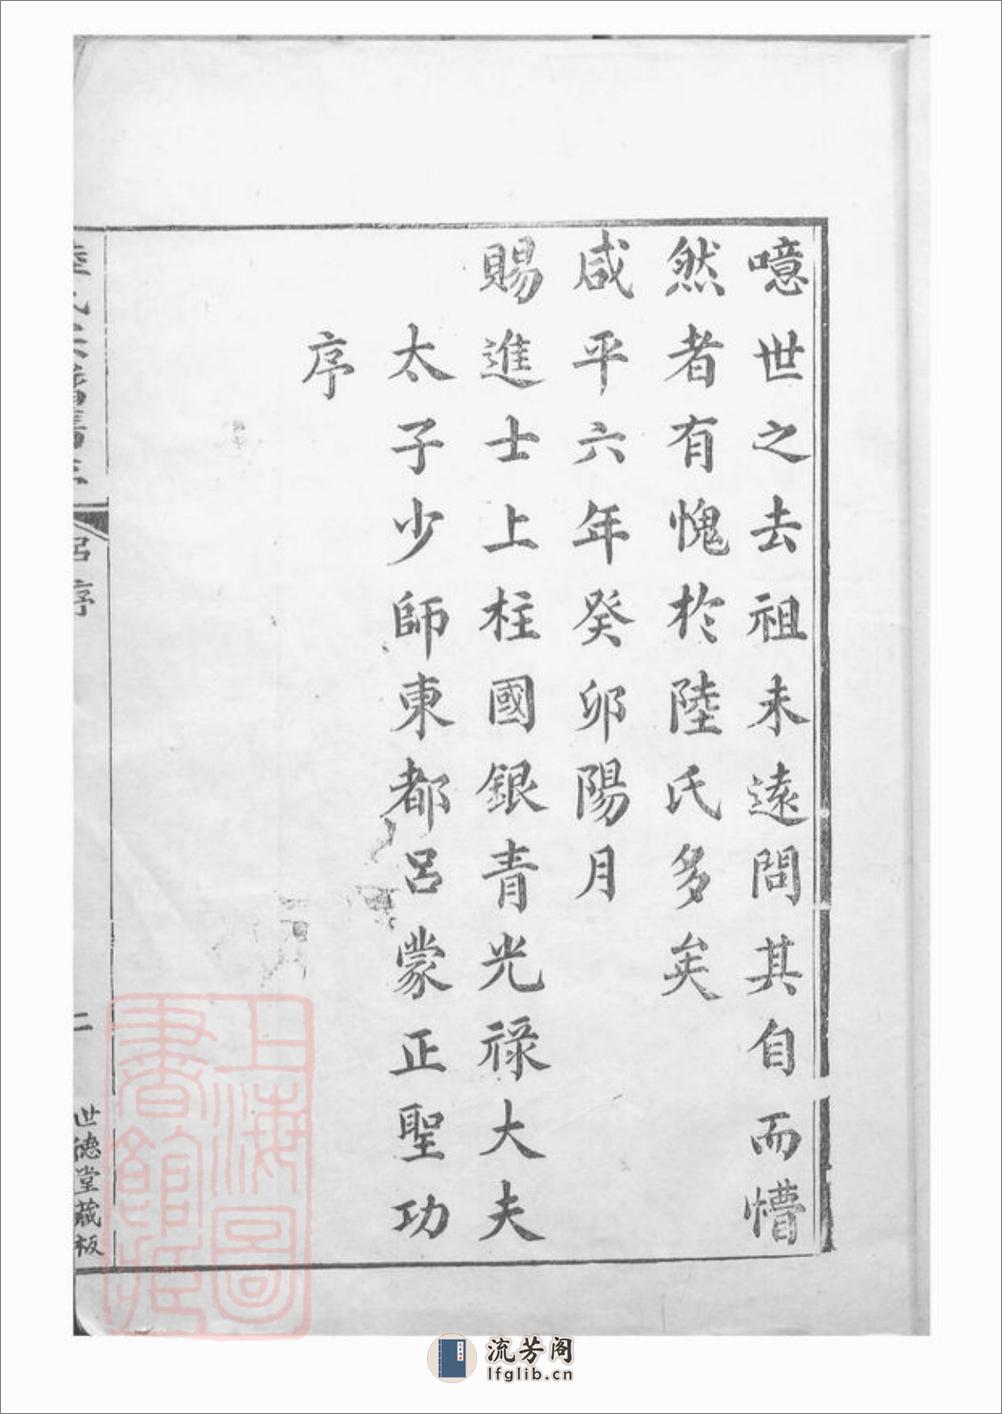 噫世之去祖未遠問其自而懵
然者有愧於陸氏多矣
咸平六年癸卯陽月
賜進士上柱國銀青光祿大夫
太子少師東都呂蒙正聖功
序
呂序
二
世德堂藏板
上海圖
書館藏
流芳阁
lfglib.cn